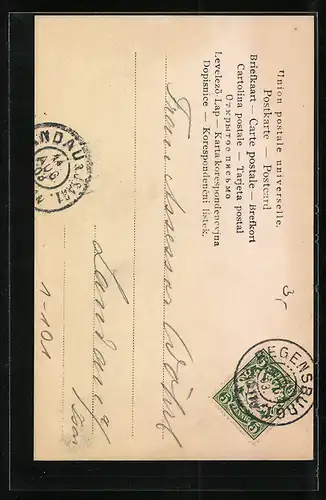 Union postale universelle.
Postkarte — Postcard
Briefkaart — Carte postale — Brefkort
Cartolina postale — Tarjeta postal
Открытое письмо
Levelező-Lap — Karta korespondencyjna
Dopisnice — Korespondenční lístek.
REGENSBURG
LANDAU
AUG
Frau Assessor
Landau
1-101